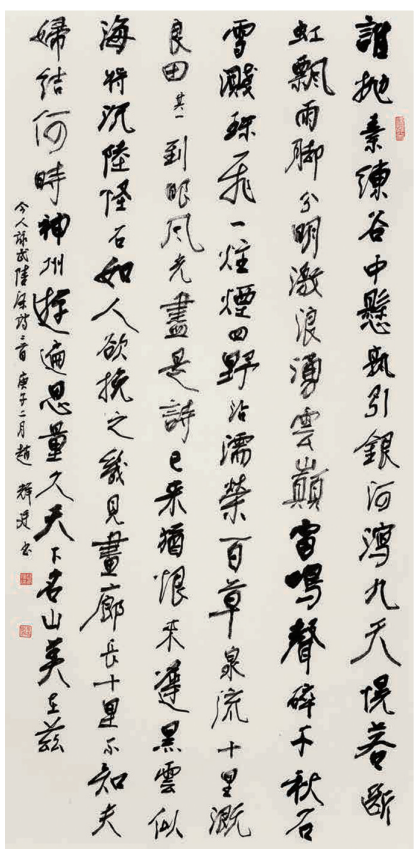 誰抛素練谷中懸孰引銀河瀉九天恍若斷
虹飄雨脚分明激浪湧雲巔雷鳴聲碎千秋石
雪濺珠飛一炷煙四野沾濡榮百草泉流十里溉
良田其一到眼風光盡是詩已来猶恨来遲黑雲似
海將沉陸石如人欲挽之幾見畫廊長十里不知夫
婦結何時神州遊遍思量久天下名山美在茲
今人詩二首庚子二月趙書